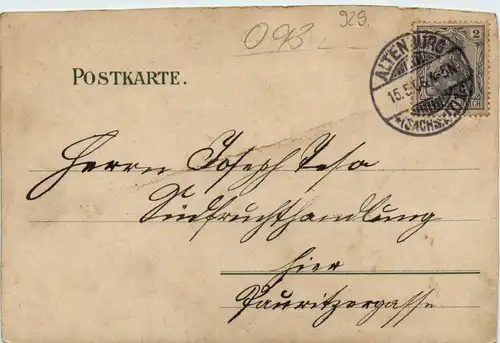 093 929.
POSTKARTE.
ALTENBURG
15.5.05. 4-5N.
*(SACHS.-A.)
2
Herrn Joseph Tesa
Südfruchthandlung
hier
Pauritzergasse